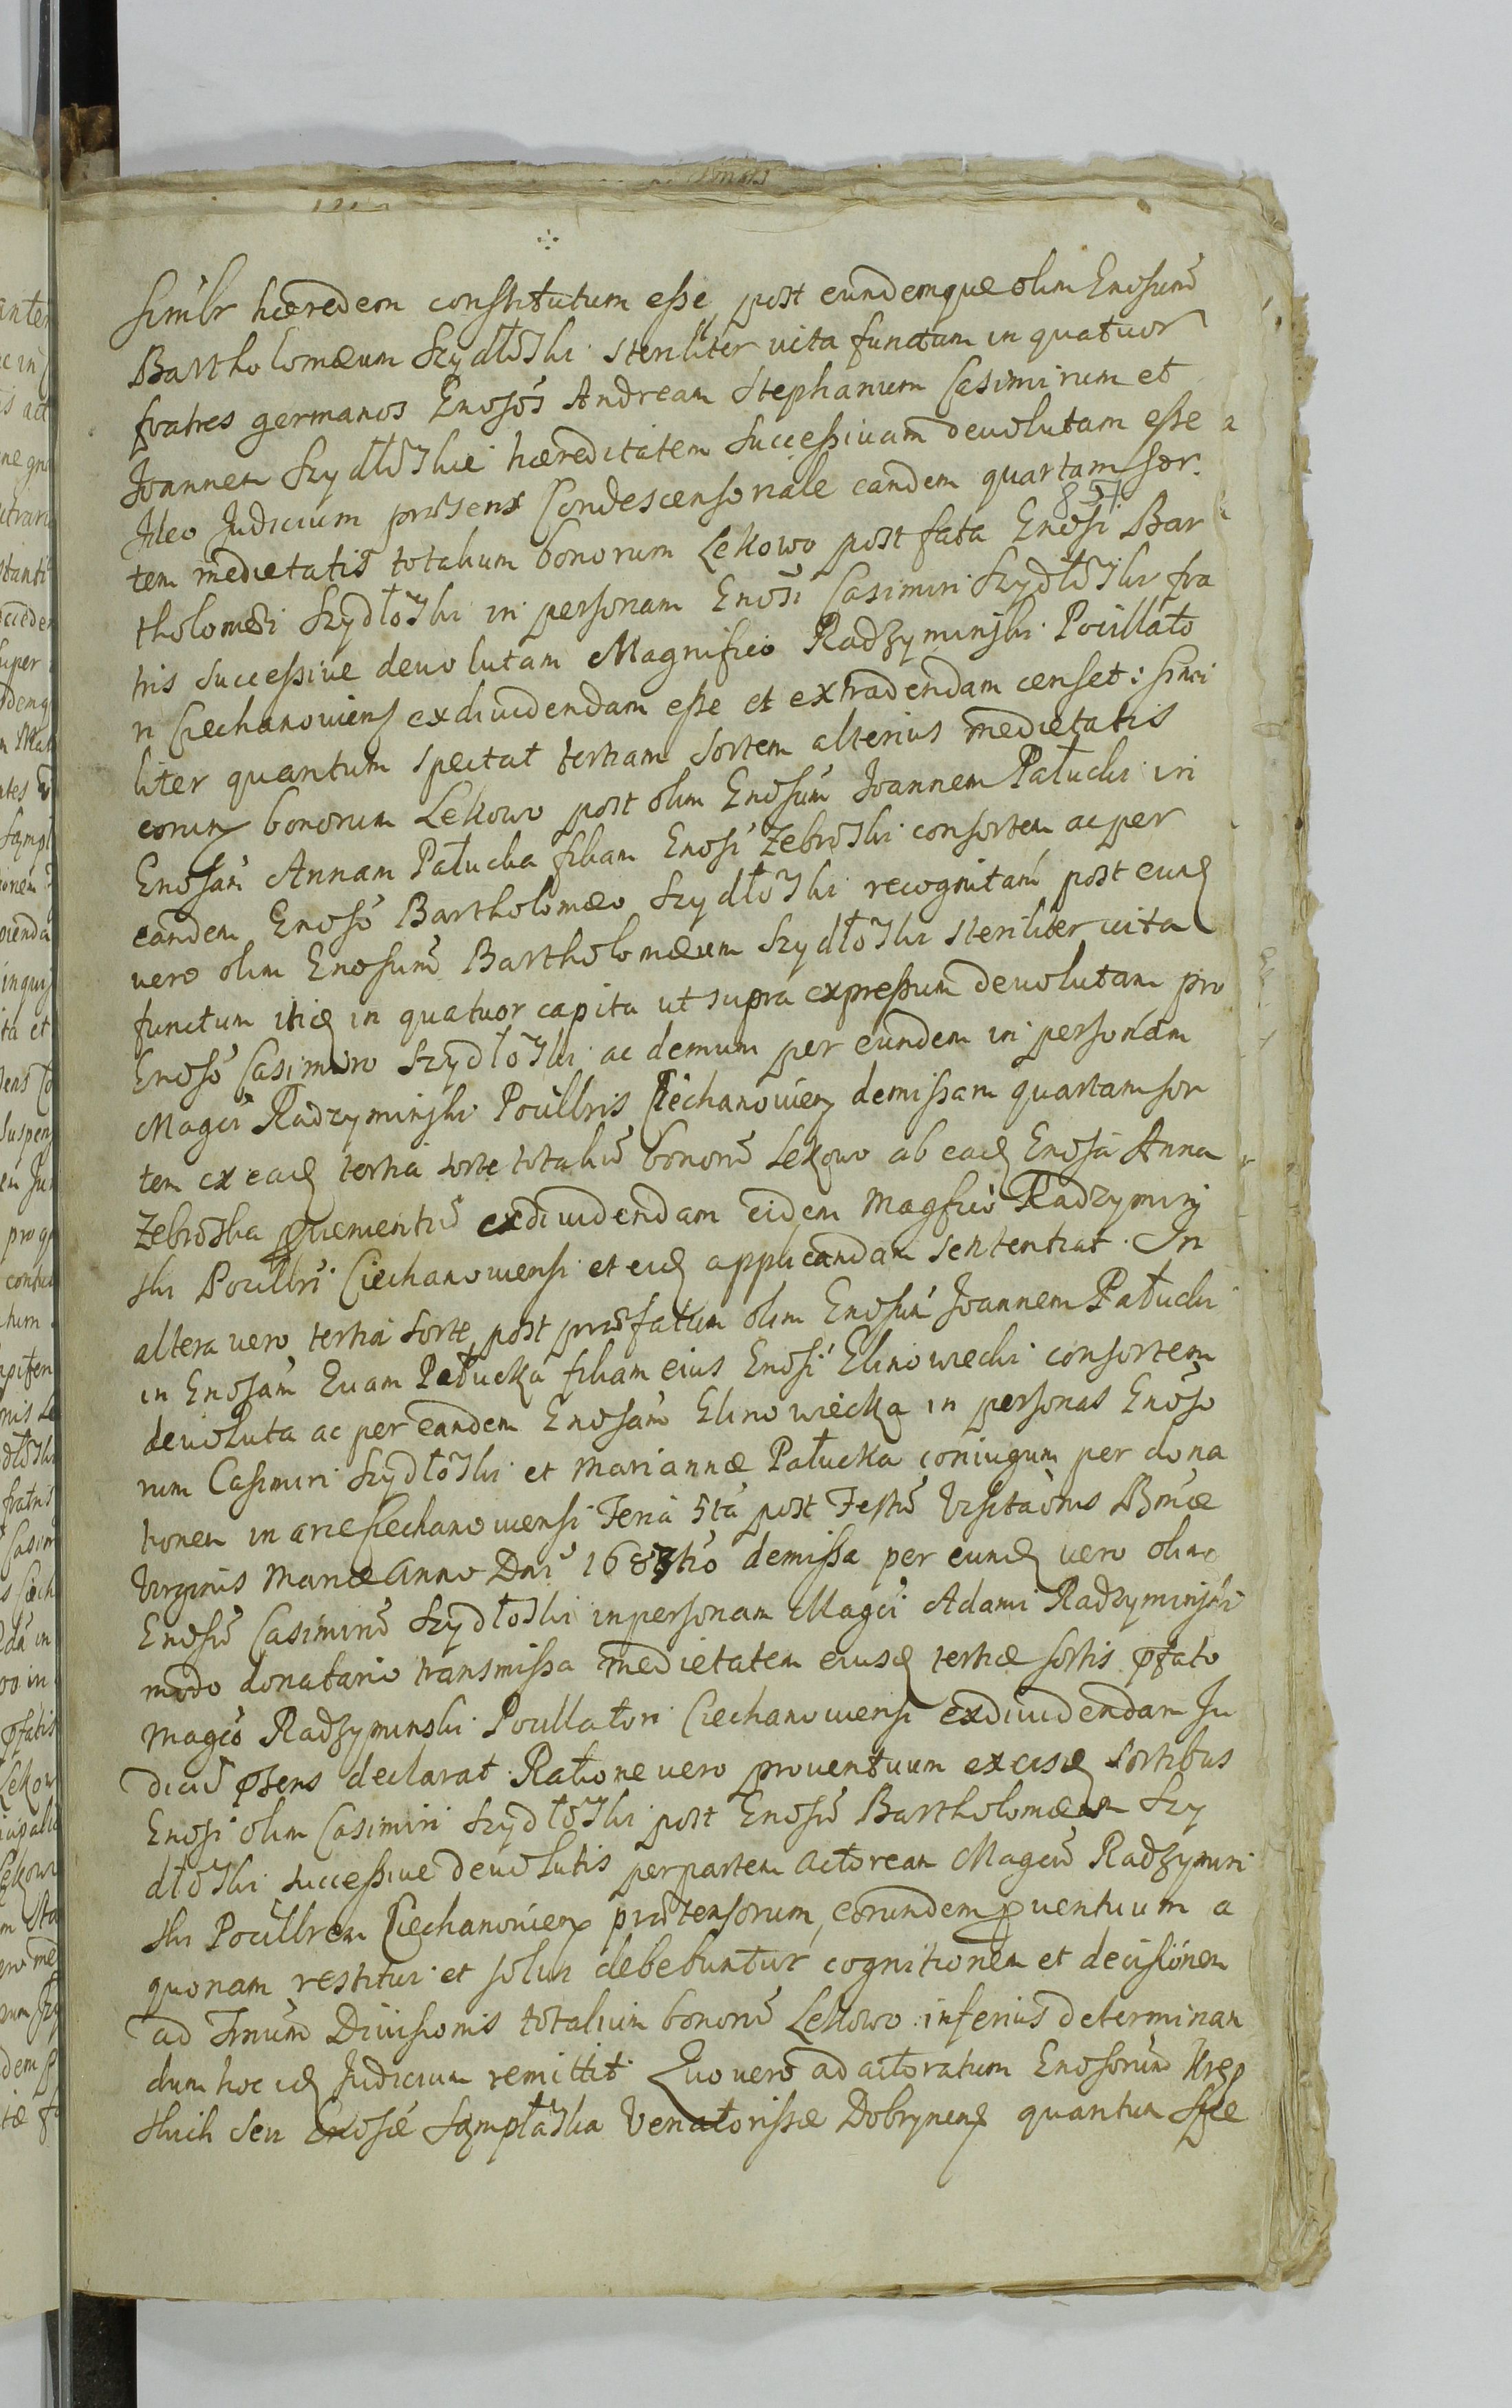 simlr hæredem constitutum esse, post eundemque olim Gnosum
Bartholomæum Szydłoski steriliter vita functum in quatuor
fratres germanos Gnosos Andream Stephanum Casimirum et
Joannem Szydłoskie hæreditatem successivam devolutam esse
Ideo Judicium præsens Condescensoriale eandem quartam sor
tem medietatis totalium bonorum Lekowo post fata Gnosi Bar
tholomæi Szydłoski in personam Gnosi Casimiri Szydłoski fra
tris successive devolutam Magnifico Radzyminski Pocillato
ri Ciechanoviens exdividendam esse et extradendam censet: simi
liter quantum spectat tertiam sortem alterius medietatis
eorun bonorum Lekowo post olim Gnosum Joannem Pałucki in
Gnosam Annam Pałucka filiam Gnosi Zebroski consortem ac per
eandem Gnoso Bartholomæo Szydłoski recognitam, post eund
vero olim Gnosum Bartholomæum Szydłoski steriliter vita
functum itid in quatuor capita ut supra expressum devolutam pro
Gnoso Casimiro Szydłoski ac demum per eundem in personam
Magci Radzyminski Pocillris Ciechanovien demissam quartam sor
tem ex ead tertia sorte totaliu bonoru Lekowo ab ead Gnosa Anna
Zebroska exdividendam eidem Magfico Radzymin
ski Pocillri Ciechanowiensi et eid applicandam sententiat. In
altera vero tertia sorte post præfatum olim Gnosum Joannem Pałucki
in Gnosam Evam Pałucka filiam eius Gnosi Elinowiecki consortem
devoluta ac per eandem Gnosam Elinowiecka in personas Gnoso
rum Casimiri Szydłoski et Mariannæ Pałucka coniugum per dona
tionem in arce Ciechanowiensi Feria 5ta post Festu Visitaonis Bmæ
Virginis Mariæ Anno Dni 1683tio demissa per eund vero olim
Gnosu Casimiru Szydłoski in personam Magci Adami Radzyminski
modo donatario transmissa medietatem eiusd tertiæ sortis pfato
Magco Radzyminski Pocillatori Ciechanowiensi exdividendam Ju
diciu psens declarat. Ratione vero proventuum ex eisd sortibus
Gnosi olim Casimiri Szydłoski post Gnosu Bartholomæum Szy
dłoski successive devolutis per partem actoream Magcu Radzymin
ski Pocillrem Ciechanovien prætensorum, eorundem pventuum a
quonam restitui et solui debebuntur cognitionem et decisionem
ad Tmum Divisionis totalium bonoru Lekowo inferius determinan
dum hoc id Judicium remittit. Quo vero ad actoratum Gnosorum Krep
skich seu Gnosæ Sąmpłaska Venatorissæ Dobrynen quantum spe